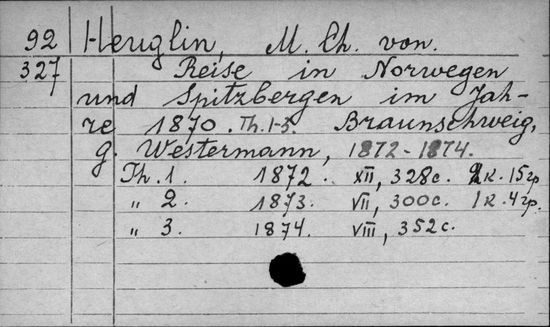 92 Heuglin, M. Th. von.
327 Reise in Norwegen
und Spitzbergen im Jah-
re 1870. Th. 1-3. Braunschweig,
g. Westermann, 1872-1874.
Th. 1. 1872. XII, 328c. 2к. 15гр
" 2. 1873. VII, 300c. 1к. 4гр.
" 3. 1874. VIII, 352c.